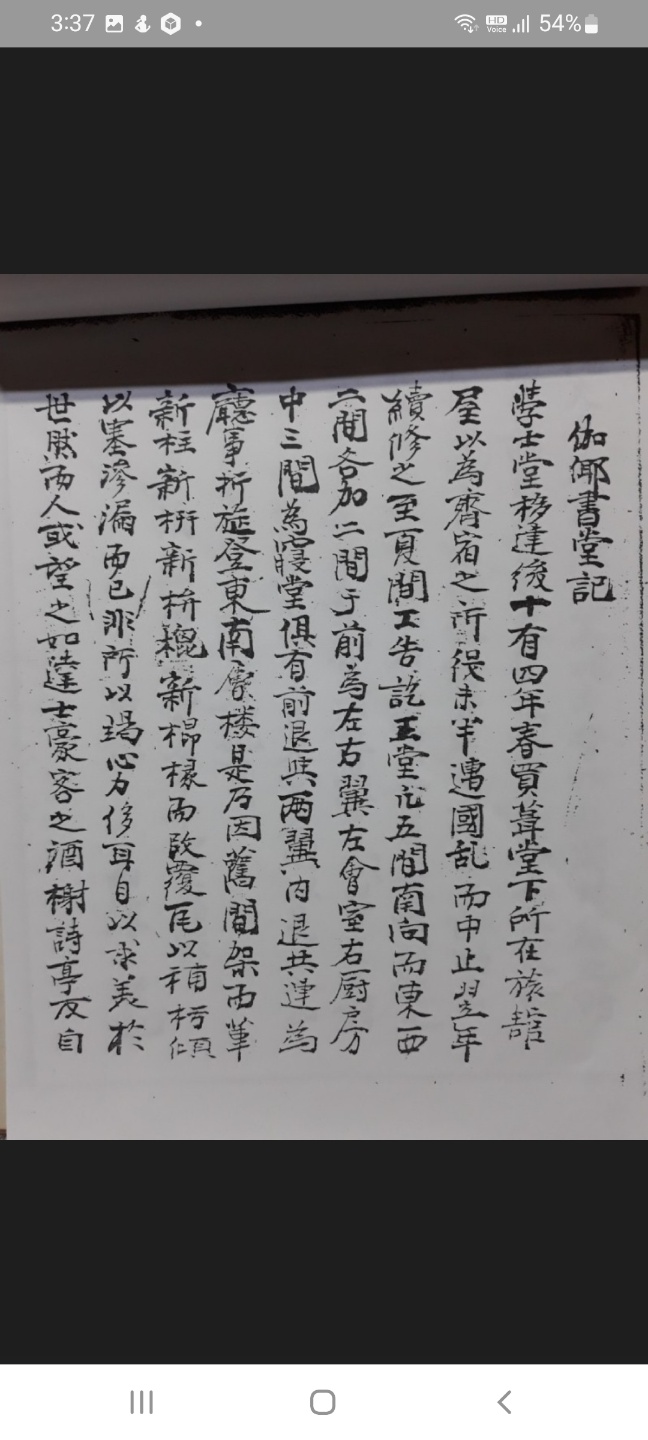 3:37
HD Voice
54%
伽倻書堂記
學士堂移建後十有四年春買葺堂下所在旅舘
屋以為齊宿之所役未半遭國乱而中止翌年
續修之至夏間工告訖正堂元五間南向而東西
二間各加二間于前為左右翼左會室右厨房
中三間為寢堂俱有前退與兩翼內退共連為
廳事折旋登東南房楼是乃因舊間架而葺
新柱新栟新梁新榱而改覆瓦以補朽傾
以塞滲漏而已非所以竭心力侈耳目以求美於
世然而人或望之如達士豪客之酒榭詩亭及自